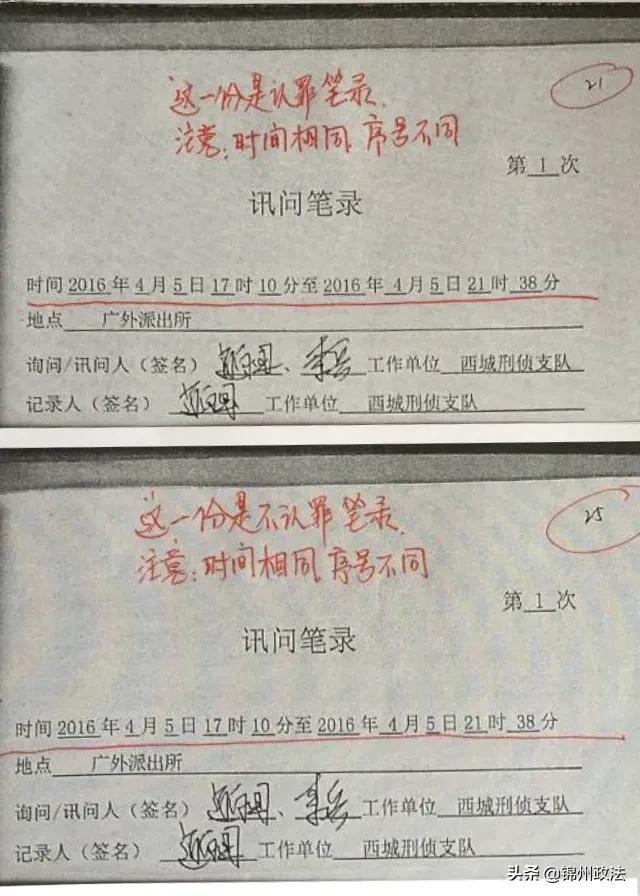 这一份是认罪笔录.
21
注意:时间相同 序号不同
第 1 次
讯问笔录
时间 2016 年 4 月 5 日 17 时 10 分至 2016 年 4 月 5 日 21 时 38 分
地点 广外派出所
询问/讯问人（签名） 、 工作单位 西城刑侦支队
记录人（签名） 工作单位 西城刑侦支队
这一份是不认罪笔录.
25
注意:时间相同 序号不同
第 1 次
讯问笔录
时间 2016 年 4 月 5 日 17 时 10 分至 2016 年 4 月 5 日 21 时 38 分
地点 广外派出所
询问/讯问人（签名） 、 工作单位 西城刑侦支队
记录人（签名） 工作单位 西城刑侦支队
头条 @锦州政法